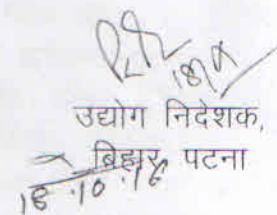 18/x
उद्योग निदेशक,
बिहार, पटना
18.10.16